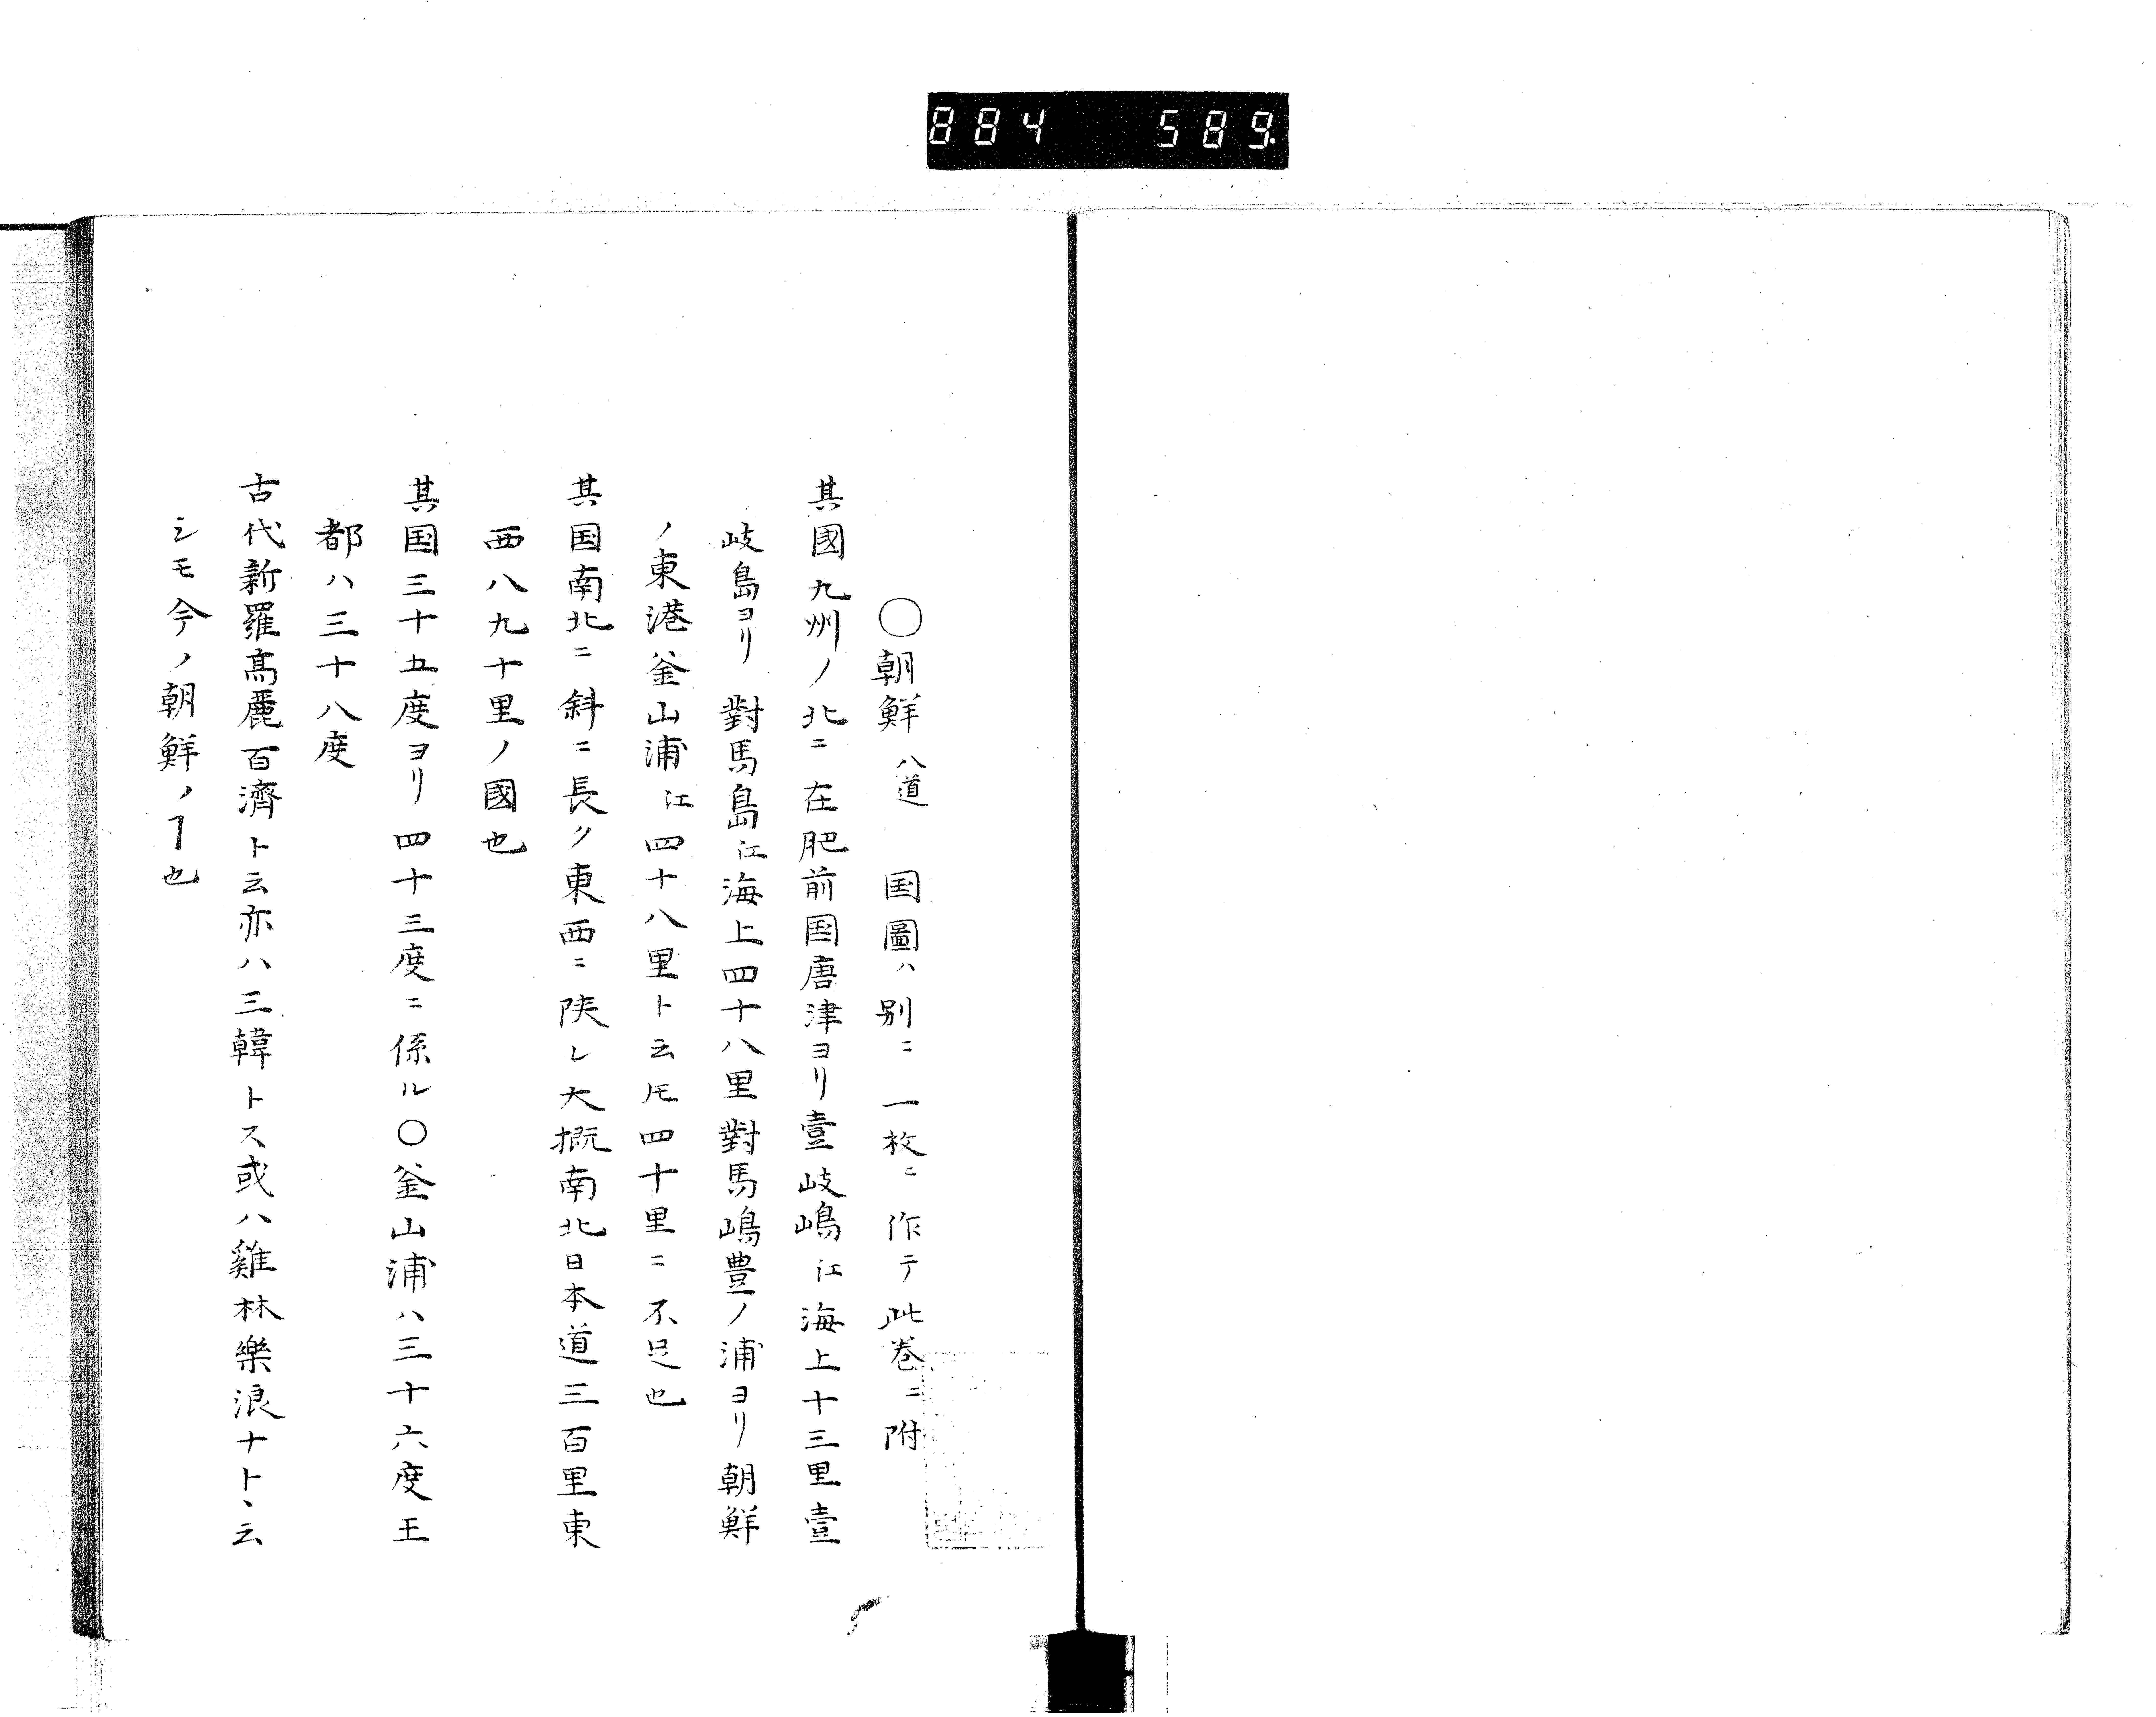 884 589
〇朝鮮 八道 国圖ハ別ニ一枚ニ作テ此巻ニ附
其國九州ノ北ニ在肥前国唐津ヨリ壹岐嶋江海上十三里壹
岐島ヨリ對馬島江海上四十八里對馬嶋豊ノ浦ヨリ朝鮮
ノ東港釜山浦江四十八里ト云𪜈四十里ニ不足也
其国南北ニ斜ニ長ク東西ニ陜レ大概南北日本道三百里東
西八九十里ノ國也
其国三十五度ヨリ四十三度ニ係ル〇釜山浦ハ三十六度王
都ハ三十八度
古代新羅高麗百濟ト云亦ハ三韓トス或ハ雞林樂浪ナトヽ云
シモ今ノ朝鮮ノヿ也